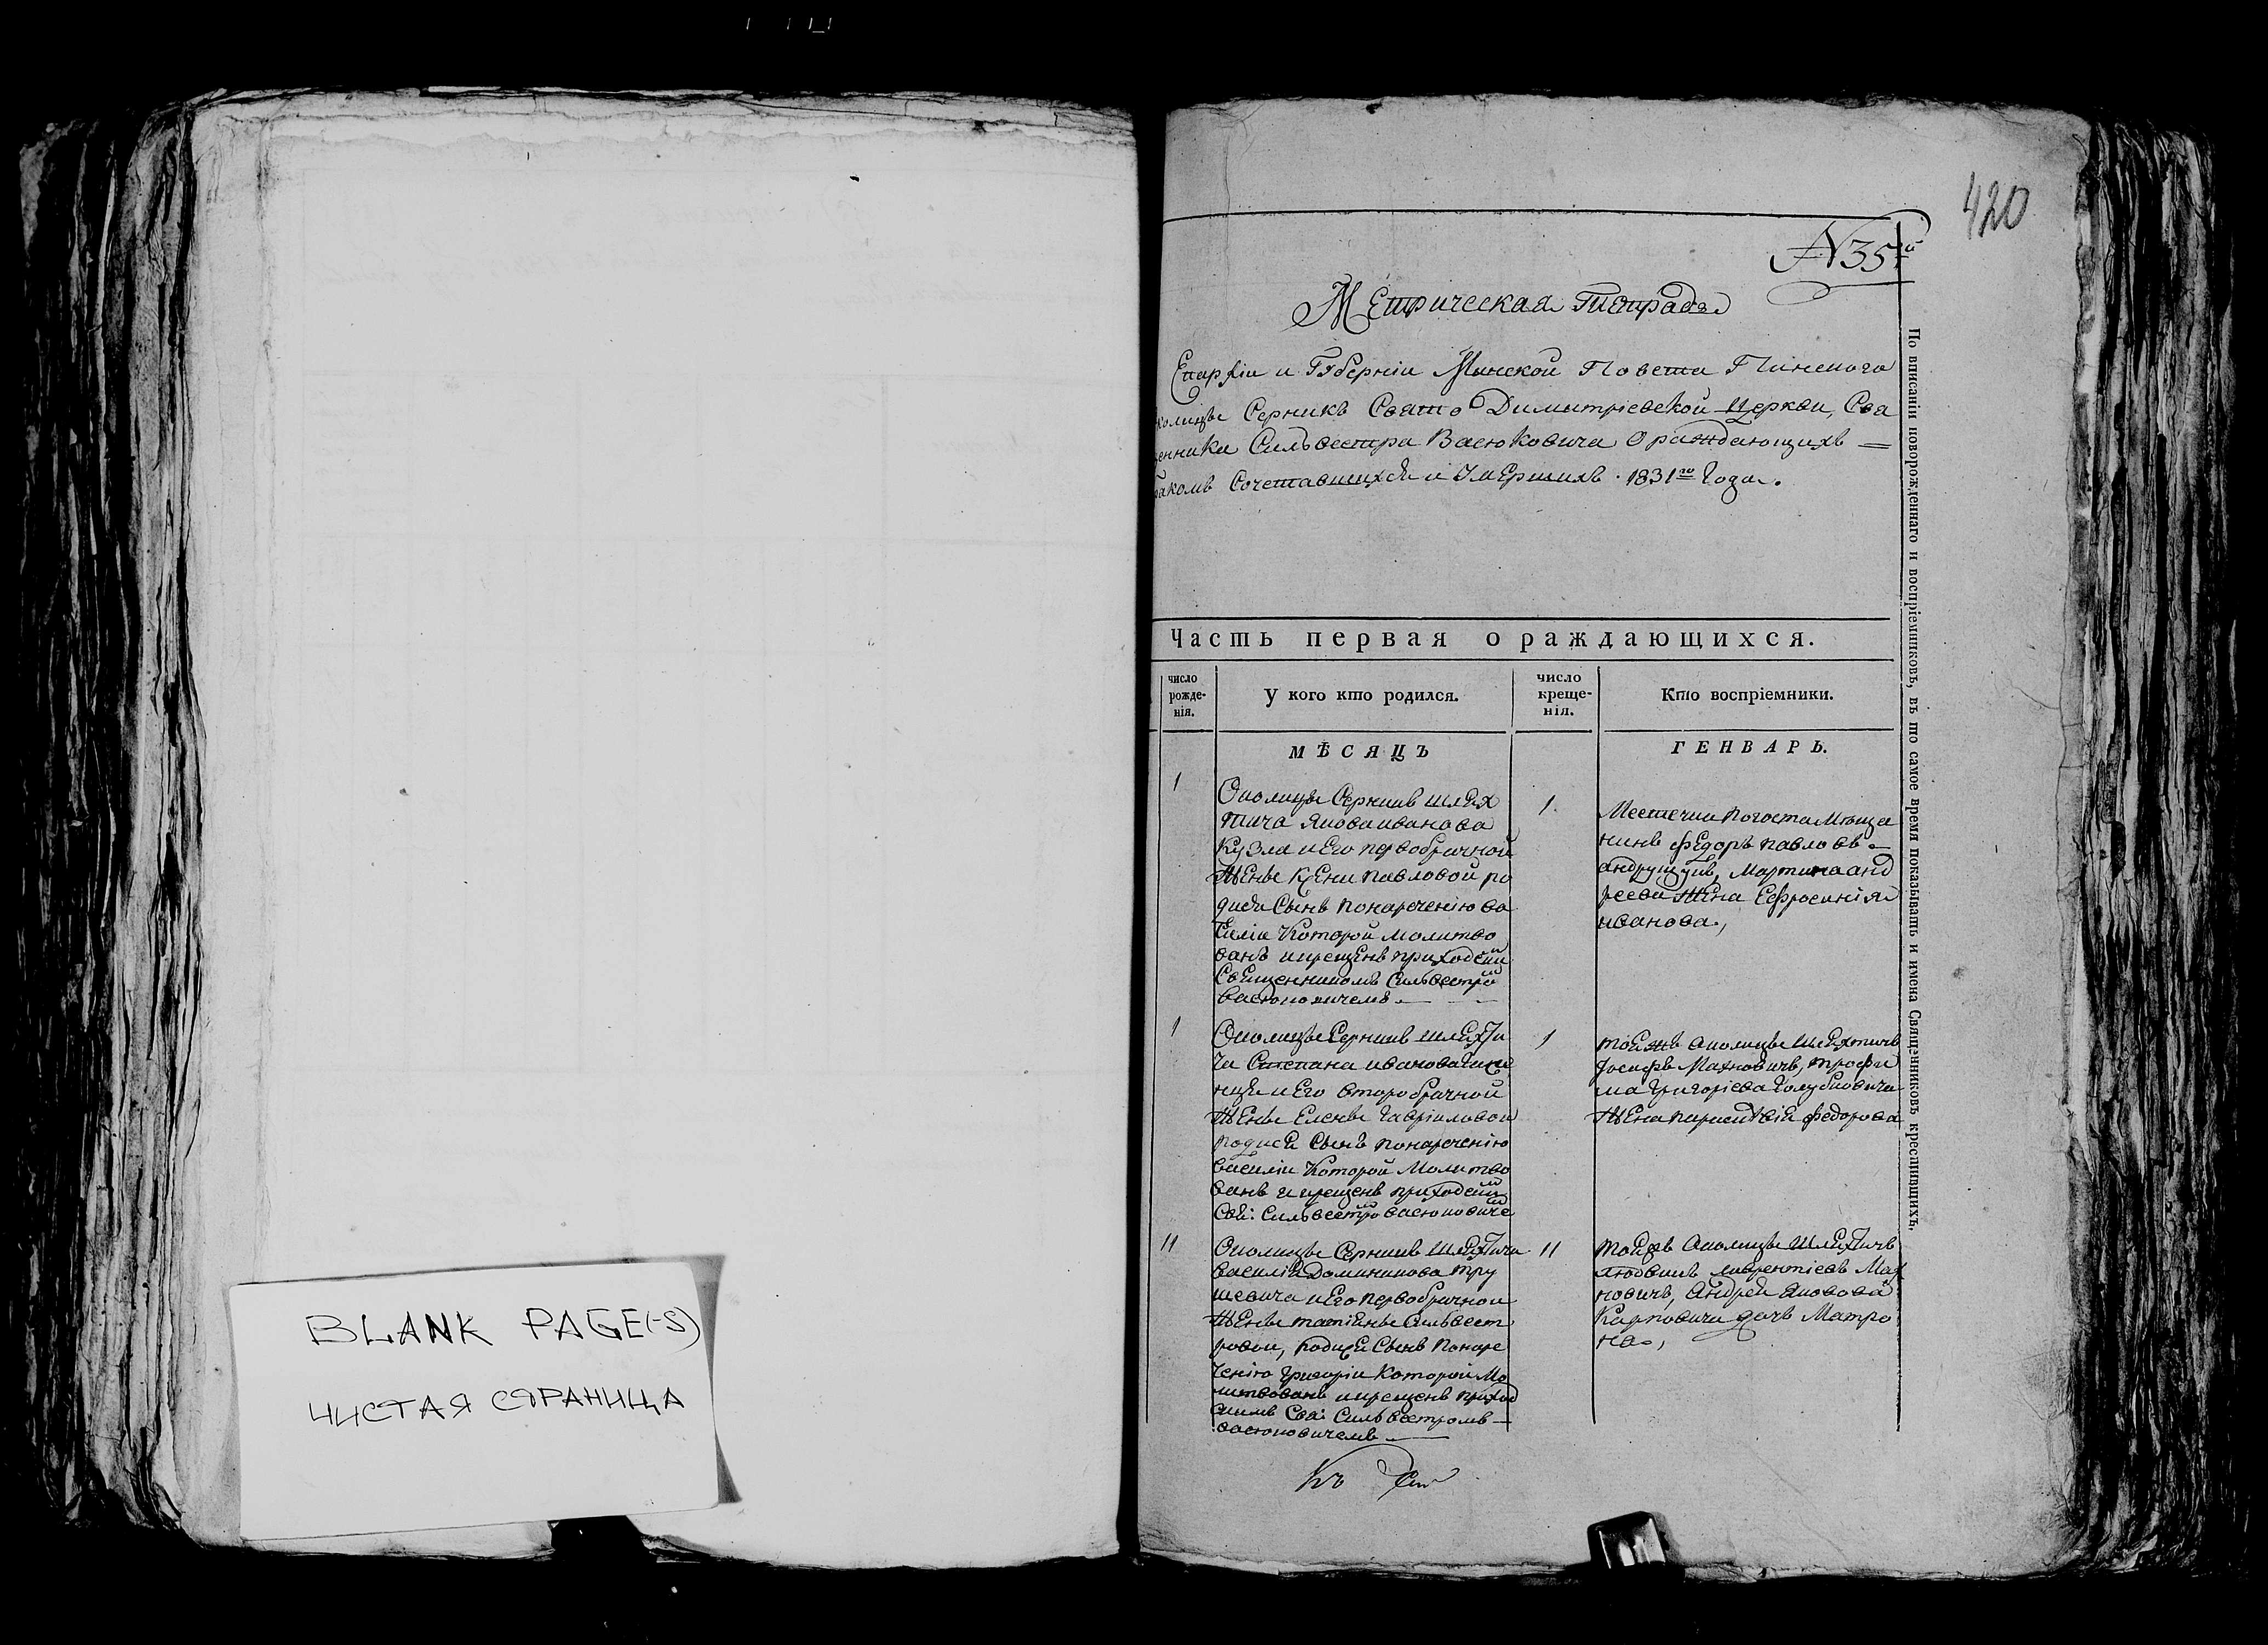 420
N 35й
Метрическая Тетрадь
Епархіи и Губерніи Минской Повета Пинскаго
колицы Серникъ Свято Димитріевской Церкви, Свя
щенника Сильвестра Васюковича О раждающихъ =
ракомъ Сочетавшихся и Умершихъ . 1831го Года.
Часть первая о раждающихся.
число рожде- нія.
У кого кто родился.
число креще- нія.
Кто воспріемники.
МѢСЯЦЪ
ГЕНВАРЬ.
1
Околицы Серникъ шлях
тича Якова иванова
Кузла и Его первобрачной
Жены Ксени павловой ро
дися Сынъ понареченію ва
силіи Которой молитво
ванъ икрещенъ приходским
Священникомъ Сильвестром
Васюковичемъ
1.
Местечка погоста Мѣща
нинъ федоръ павловъ
андрущикъ, Мартина анд
реева Жена Ефросинія
иванова,
1
Околицы Серникъ шляхти
ча Степана иванова
и Его второбрачной
Жены Елены гавріиловой
родися Сынъ понареченію
василіи Которой Молитво
ванъ и крещенъ приходским
Свя: Сильвестром васюковичем
1
тойжъ околицы шляхтичъ
Іосифъ Махновичъ, трофи
ма григоріева голубовича
Жена параскевія федорова
11
Околицы Серникъ шляхтича
василія Доминикова тру
шевича и Его первобрачной
Жены татіены Сильвест
ровои, родися Сынъ понаре
ченію григоріи Которой Мо
литвованъ икрещенъ приход
скимъ Свя: Сильвестромъ
васюковичемъ
11
тойжъ околицы шляхтичъ
людвикъ лаврентіевъ Мах
новичъ, андрея яковова
Карповича дочь Матро
на,
По вписаніи новорожденнаго и воспріемниковъ, въ то самое время показывать и имена Священниковъ крестившихъ.
BLANK PAGE(-S)
ЧИСТАЯ СТРАНИЦА